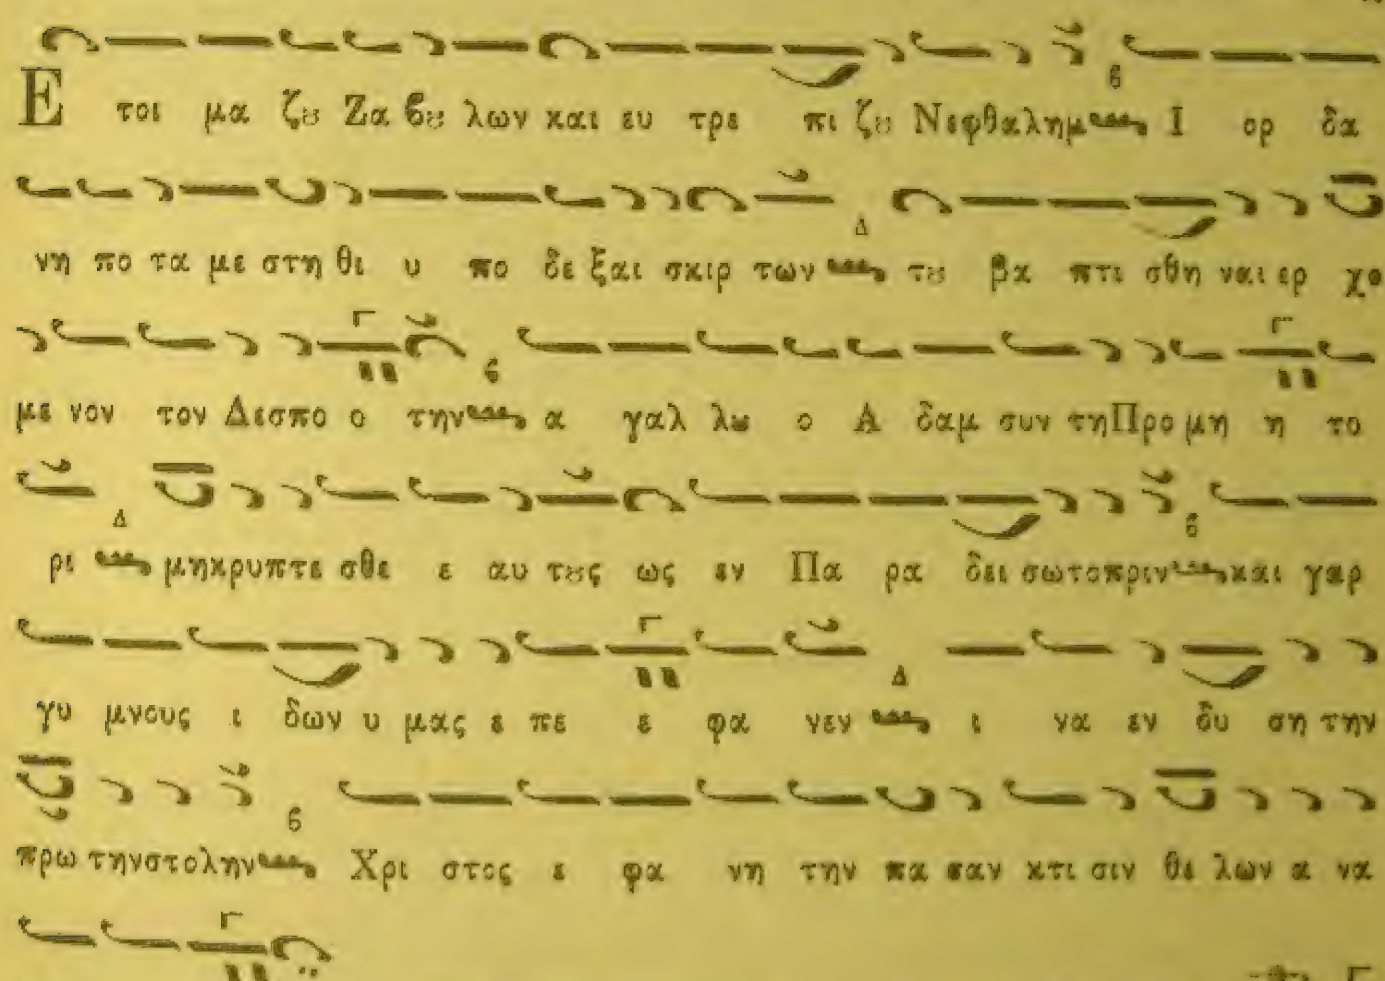 Ε τοι μα ζȣ Ζα βȣ λων και ευ τρε πι ζȣ Νεφθαλημ Ι ορ δα
νη πο τα με στη θι υ πο δε ξαι σκιρ των τȣ βα πτι σθη ναι ερ χο
με νον τον Δεσπο ο την α γαλ λȣ ο Α δαμ συν τη Προ μη η το
ρι μη κρυπτε σθε ε αυ τȣς ως εν Πα ρα δει σω το πριν και γαρ
γυ μνους ι δων υ μας ε πε ε φα νεν ι να εν δυ ση την
πρω την στολην Χρι στος ε φα νη την πα σαν κτι σιν θε λων α να